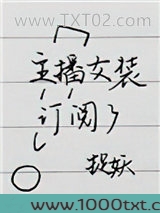 www.TXT02.com
主播女装
订阅了
捉妖
www.1000txt.com